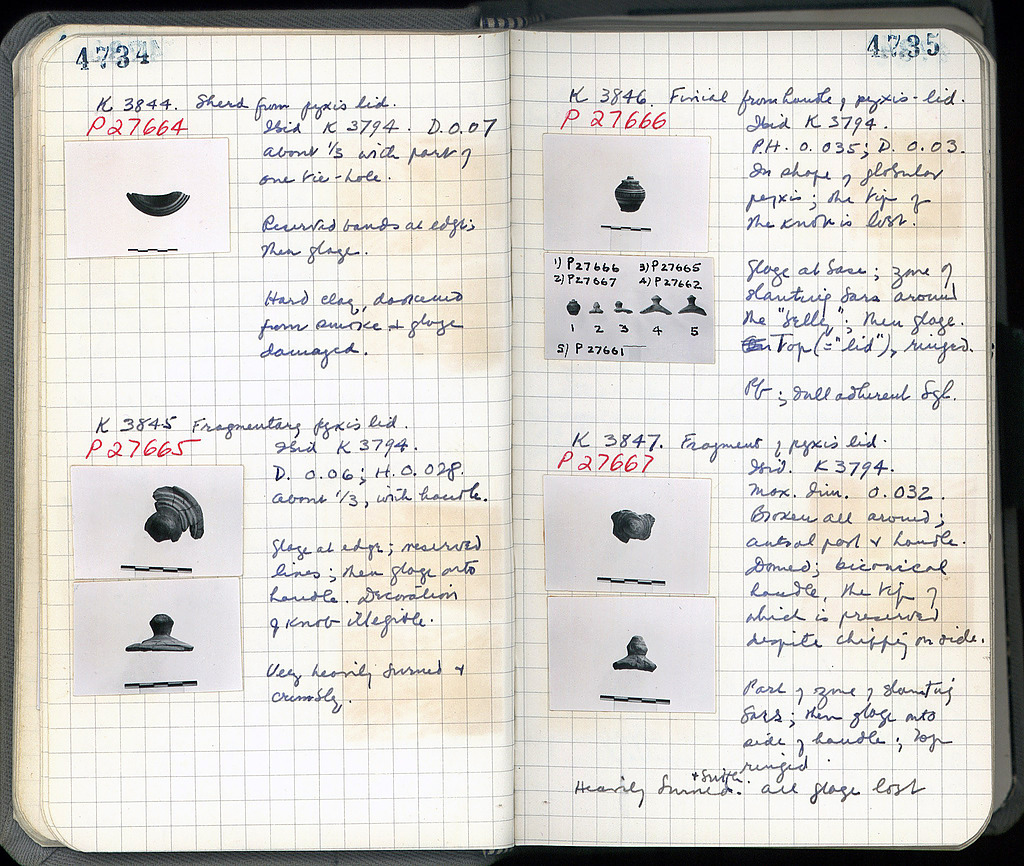 4734
K 3844. Sherd from pyxis lid.
P 27664
Ibid K 3794. D. 0.07
About 1/3 with part of
one tie-hole.
Reserved bands at edge;
then glaze.
Hard clay, darkened
from smoke & glaze
damaged.
K 3845 Fragmentary pyxis lid.
P 27665
Ibid K 3794.
D. 0.06; H. 0.028.
About 1/3, with handle.
Glaze at edge; reserved
lines; then glaze onto
handle. Decoration
of knob illegible.
Very heavily burned &
crumbly.
4735
K 3846. Finial from handle of pyxis-lid.
P 27666
Ibid K 3794.
P.H. 0.035; D. 0.03.
In shape of globular
pyxis; the tip of
the knob is lost.
1) P 27666 3) P 27665
2) P 27667 4) P 27662
1 2 3 4 5
5) P 27661
Glaze at base; zone of
slanting bars around
the "belly"; then glaze.
Top (="lid"), ringed.
Pb; dull adherent bgl.
K 3847. Fragment of pyxis lid.
P 27667
Ibid. K 3794.
Max. dim. 0.032.
Broken all around;
central part & handle.
Domed; biconical
handle, the tip of
which is preserved
despite chipping on side.
Part of zone of slanting
bars; then glaze onto
side of handle; top
ringed.
Heavily burned. all glaze lost